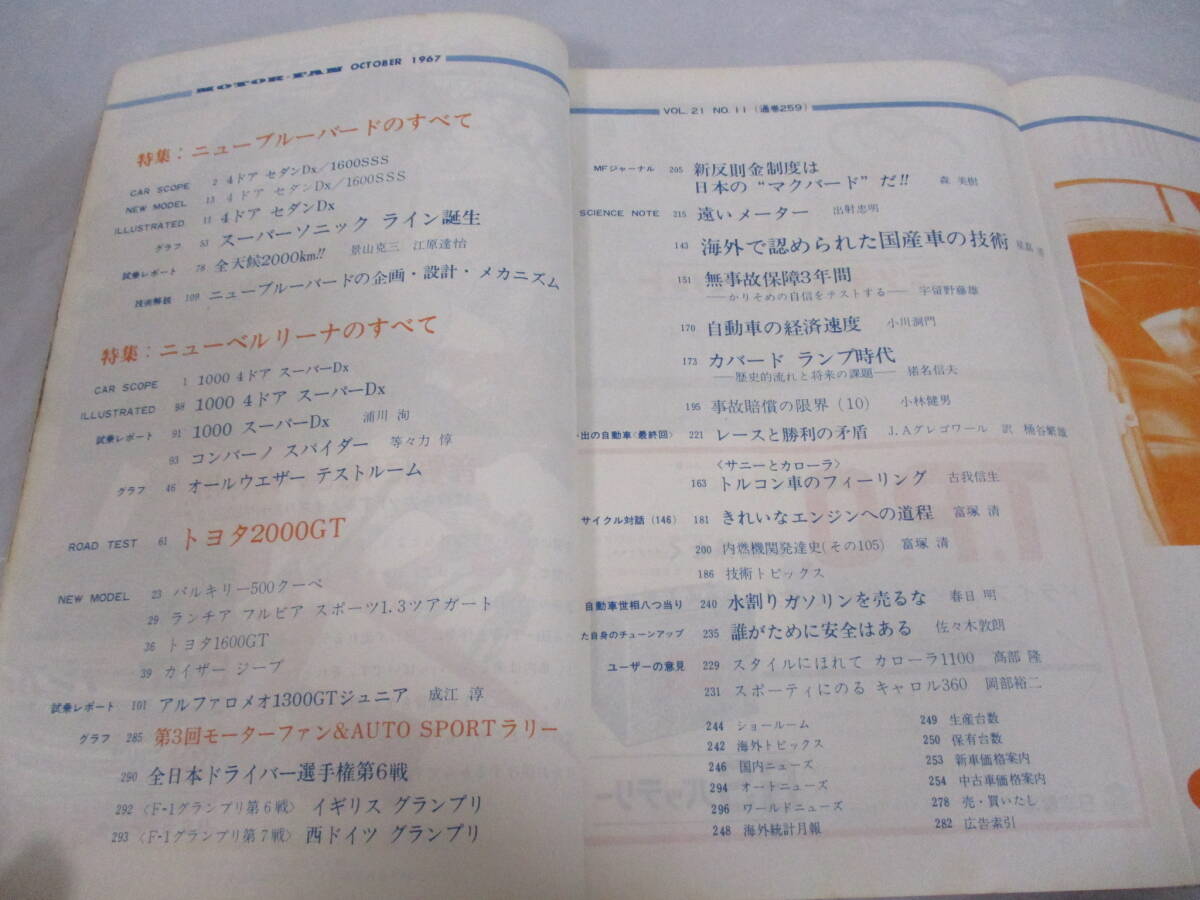 MOTOR・FAN OCTOBER 1967
特集：ニューブルーバードのすべて
CAR SCOPE 2 4ドア セダンDx／1600SSS
NEW MODEL 13 4ドア セダンDx／1600SSS
ILLUSTRATED 11 4ドア セダンDx
グラフ 53 スーパーソニック ライン誕生
試乗レポート 78 全天候2000km!! 景山克三 江原達怡
技術解説 109 ニューブルーバードの企画・設計・メカニズム
特集：ニューベルリーナのすべて
CAR SCOPE 1 1000 4ドア スーパーDx
ILLUSTRATED 98 1000 4ドア スーパーDx
試乗レポート 91 1000 スーパーDx 浦川 洵
93 コンパーノ スパイダー 等々力 惇
グラフ 46 オールウエザー テストルーム
ROAD TEST 61 トヨタ2000GT
NEW MODEL 23 バルキリー500クーペ
29 ランチア フルビア スポーツ1.3ツアガート
36 トヨタ1600GT
39 カイザー ジープ
試乗レポート 101 アルファロメオ1300GTジュニア 成江 淳
グラフ 285 第3回モーターファン&AUTO SPORTラリー
290 全日本ドライバー選手権第6戦
292 〈F-1グランプリ第6戦〉 イギリス グランプリ
293 〈F-1グランプリ第7戦〉 西ドイツ グランプリ
VOL. 21 NO. 11 (通巻259)
MFジャーナル 205 新反則金制度は
日本の “マクバード” だ!! 森 美樹
SCIENCE NOTE 215 遠いメーター 出射忠明
143 海外で認められた国産車の技術
151 無事故保障3年間
——かりそめの自信をテストする—— 宇留野藤雄
170 自動車の経済速度 小川洞門
173 カバード ランプ時代
——歴史的流れと将来の課題—— 猪名信夫
195 事故賠償の限界（10） 小林健男
出の自動車〈最終回〉 221 レースと勝利の矛盾 J.Aグレゴワール 訳 樋谷繁雄
〈サニーとカローラ〉
163 トルコン車のフィーリング 古我信生
サイクル対話（146） 181 きれいなエンジンへの道程 富塚 清
200 内燃機関発達史(その105) 富塚 清
186 技術トピックス
自動車世相八つ当り 240 水割りガソリンを売るな 春日 明
た自身のチューンアップ 235 誰がために安全はある 佐々木敦朗
ユーザーの意見 229 スタイルにほれて カローラ1100 高部 隆
231 スポーティにのる キャロル360 岡部裕二
244 ショールーム
242 海外トピックス
246 国内ニューズ
294 オートニューズ
296 ワールドニューズ
248 海外統計月報
249 生産台数
250 保有台数
253 新車価格案内
254 中古車価格案内
278 売・買いたし
282 広告索引